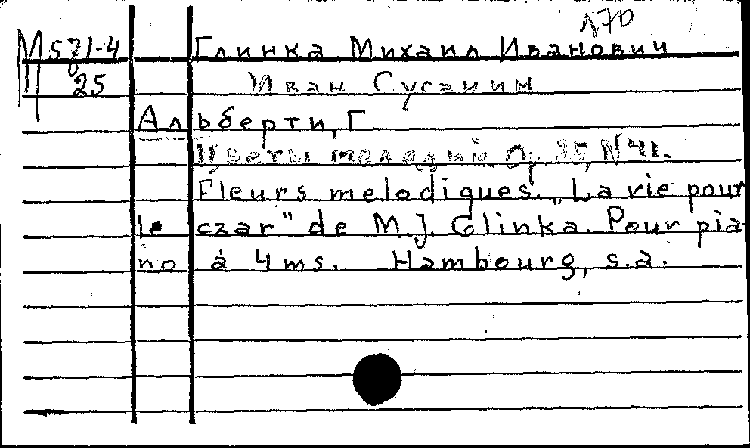 170
М 571-4 Глинка Михаил Иванович
25 Иван Сусанин
Альберти, Г
Цветы мелодий. Op. 25, N 41.
Fleurs melodiques. „La vie pour
le czar" de M. J. Glinka. Pour pia
no à 4 ms. Hambourg, s.a.